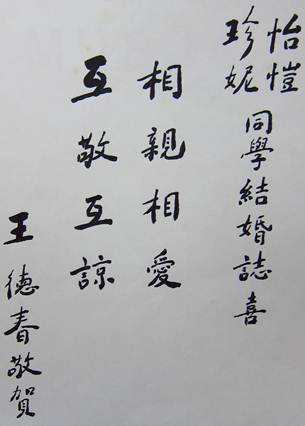 怡愷
珍妮
同學結婚誌喜
相親相愛
互敬互諒
王德春敬賀